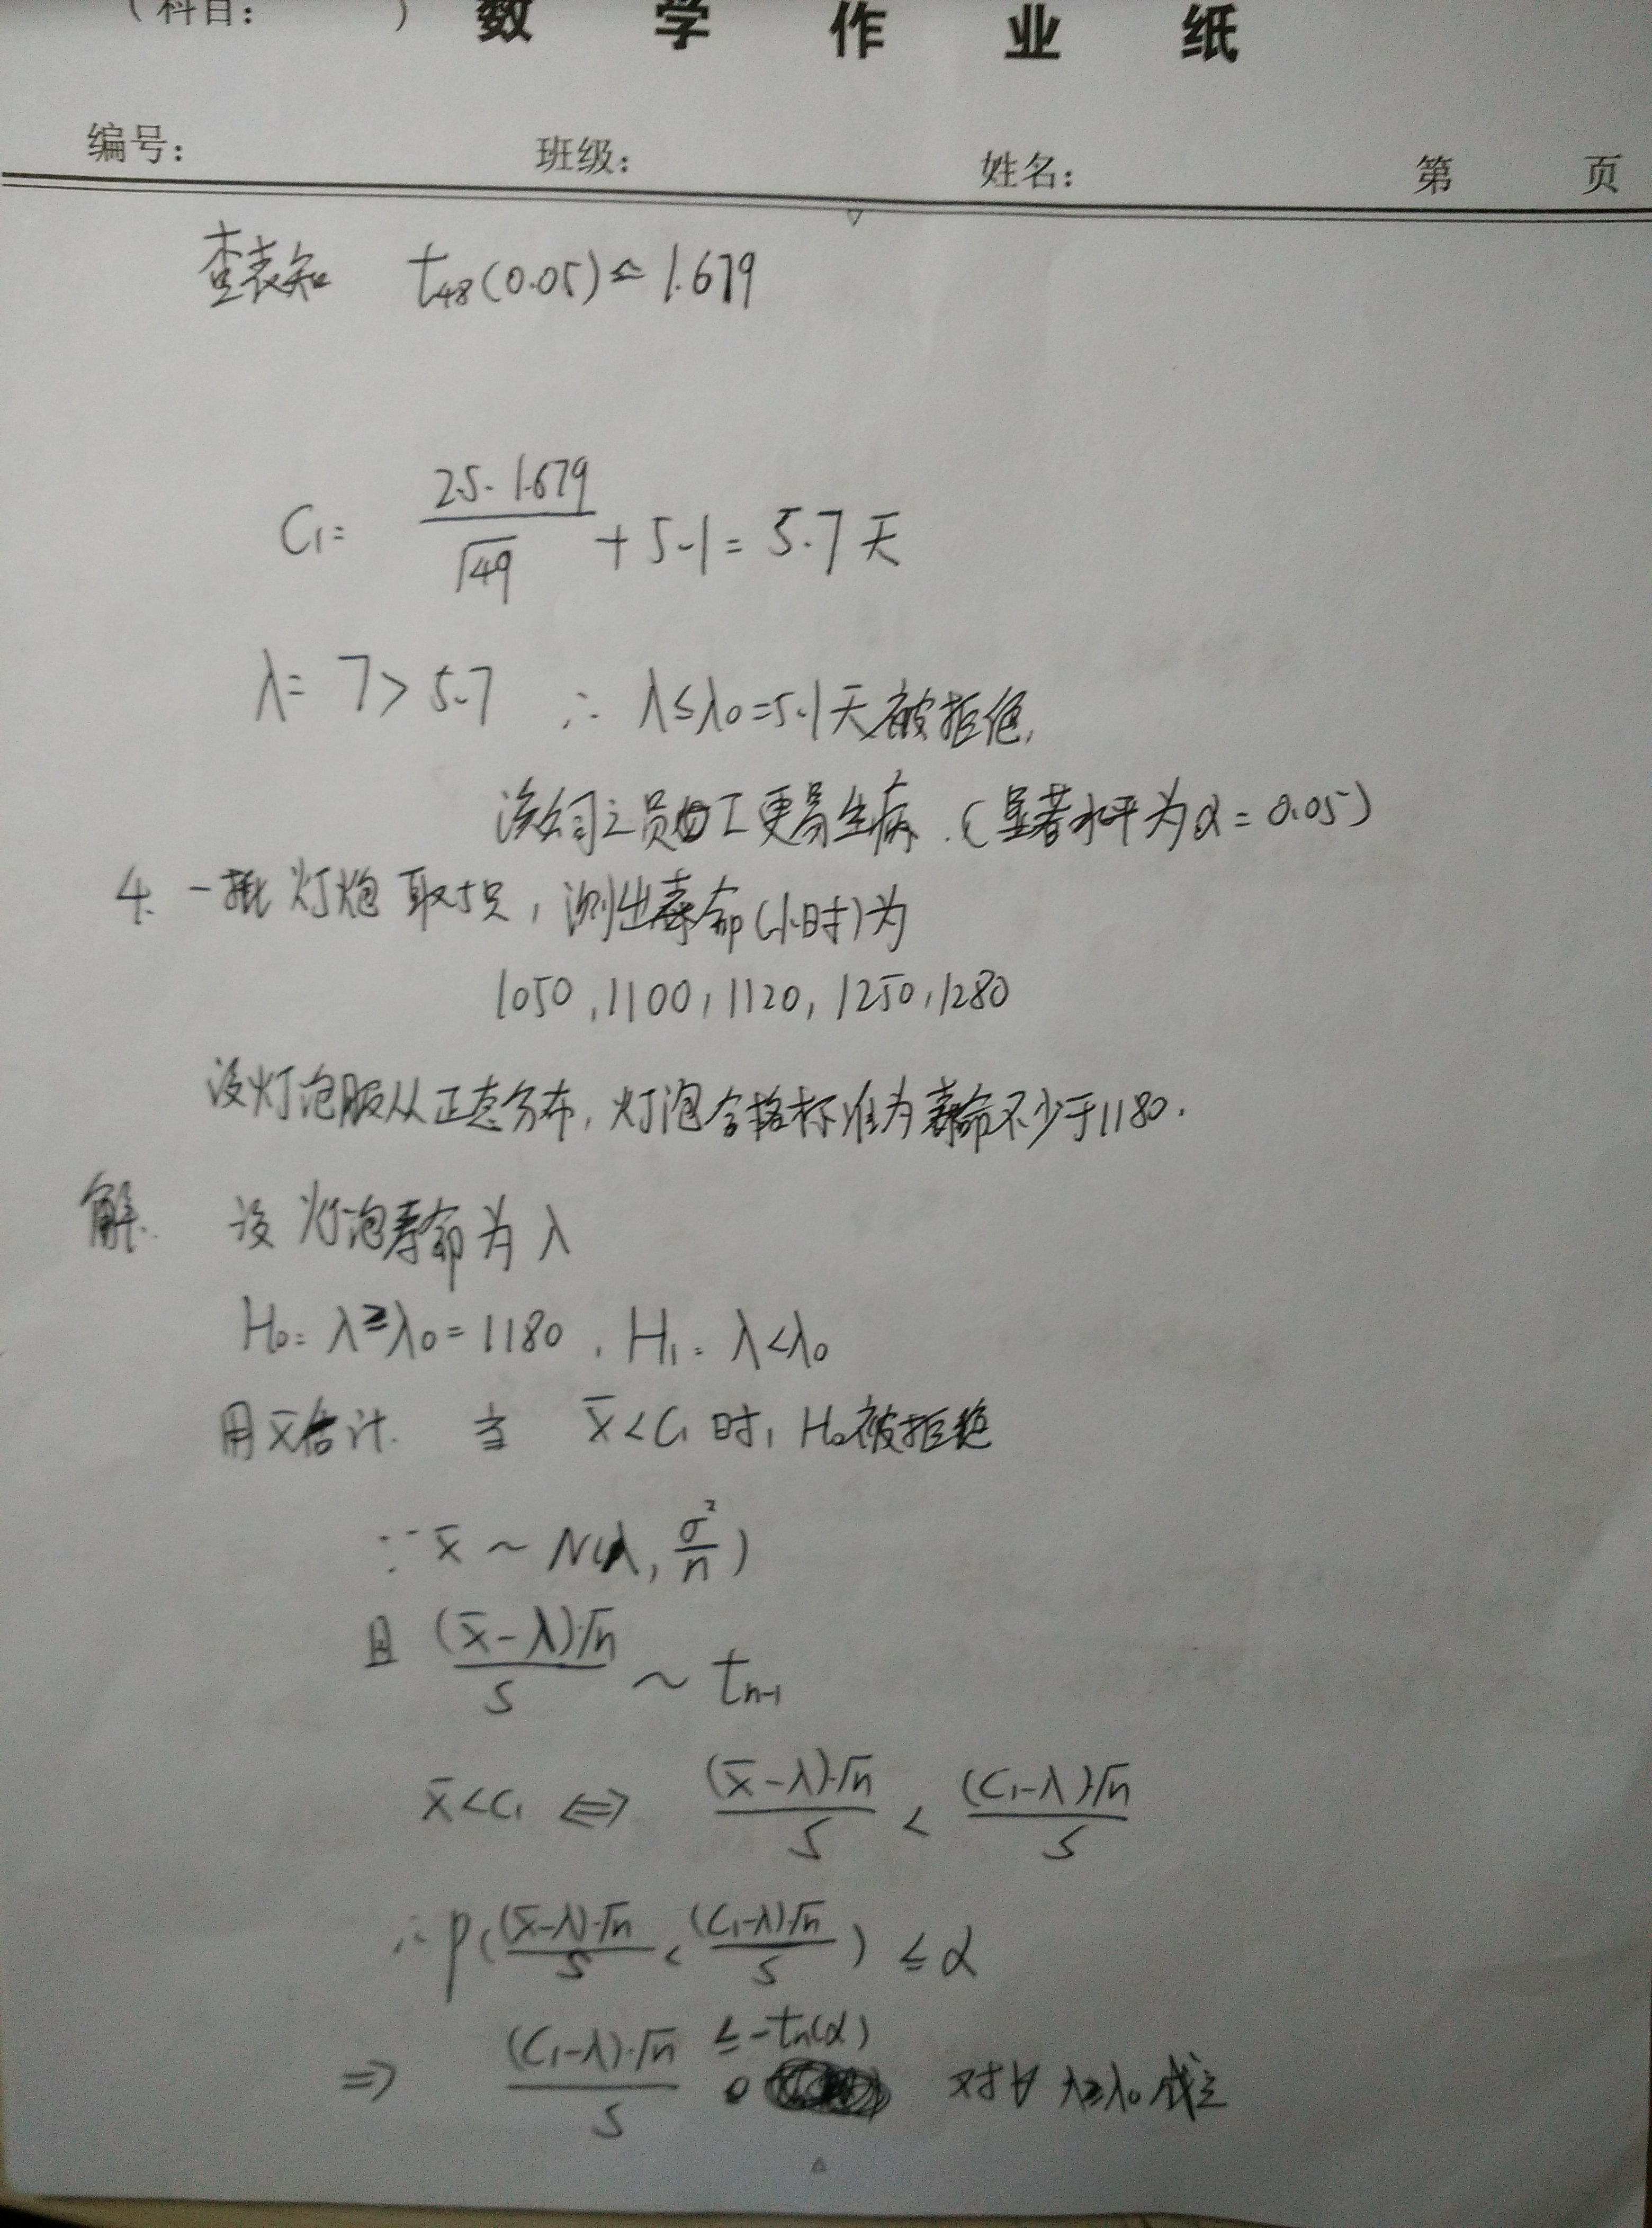 (科目: )
数 学 作 业 纸
编号: 班级: 姓名: 第 页
查表知 t₄₈(0.05) ≤ 1.679
C₁= 2.5·1.679/√49 + 5.1 = 5.7天
λ= 7 > 5.7 ∴ λ≤λ₀=5.1天被拒绝,
该公司之员工更易生病.(显著水平为α=0.05)
4. 一批灯炮取5只,测出寿命(小时)为
1050,1100,1120,1250,1280
设灯泡服从正态分布,灯泡合格标准为寿命不少于1180.
解. 设灯泡寿命为λ
H₀: λ≥λ₀=1180, H₁: λ<λ₀
用x̄估计. 当 x̄<C₁时, H₀被拒绝
∵ x̄ ~ N(λ, σ²/n)
且 (x̄-λ)·√n/S ~ tₙ₋₁
x̄<C₁ ⇔ (x̄-λ)·√n/S < (C₁-λ)·√n/S
∴ P((x̄-λ)·√n/S < (C₁-λ)·√n/S) ≤ α
⇒ (C₁-λ)·√n/S ≤ -tₙ(α) 对∀ λ≥λ₀成立